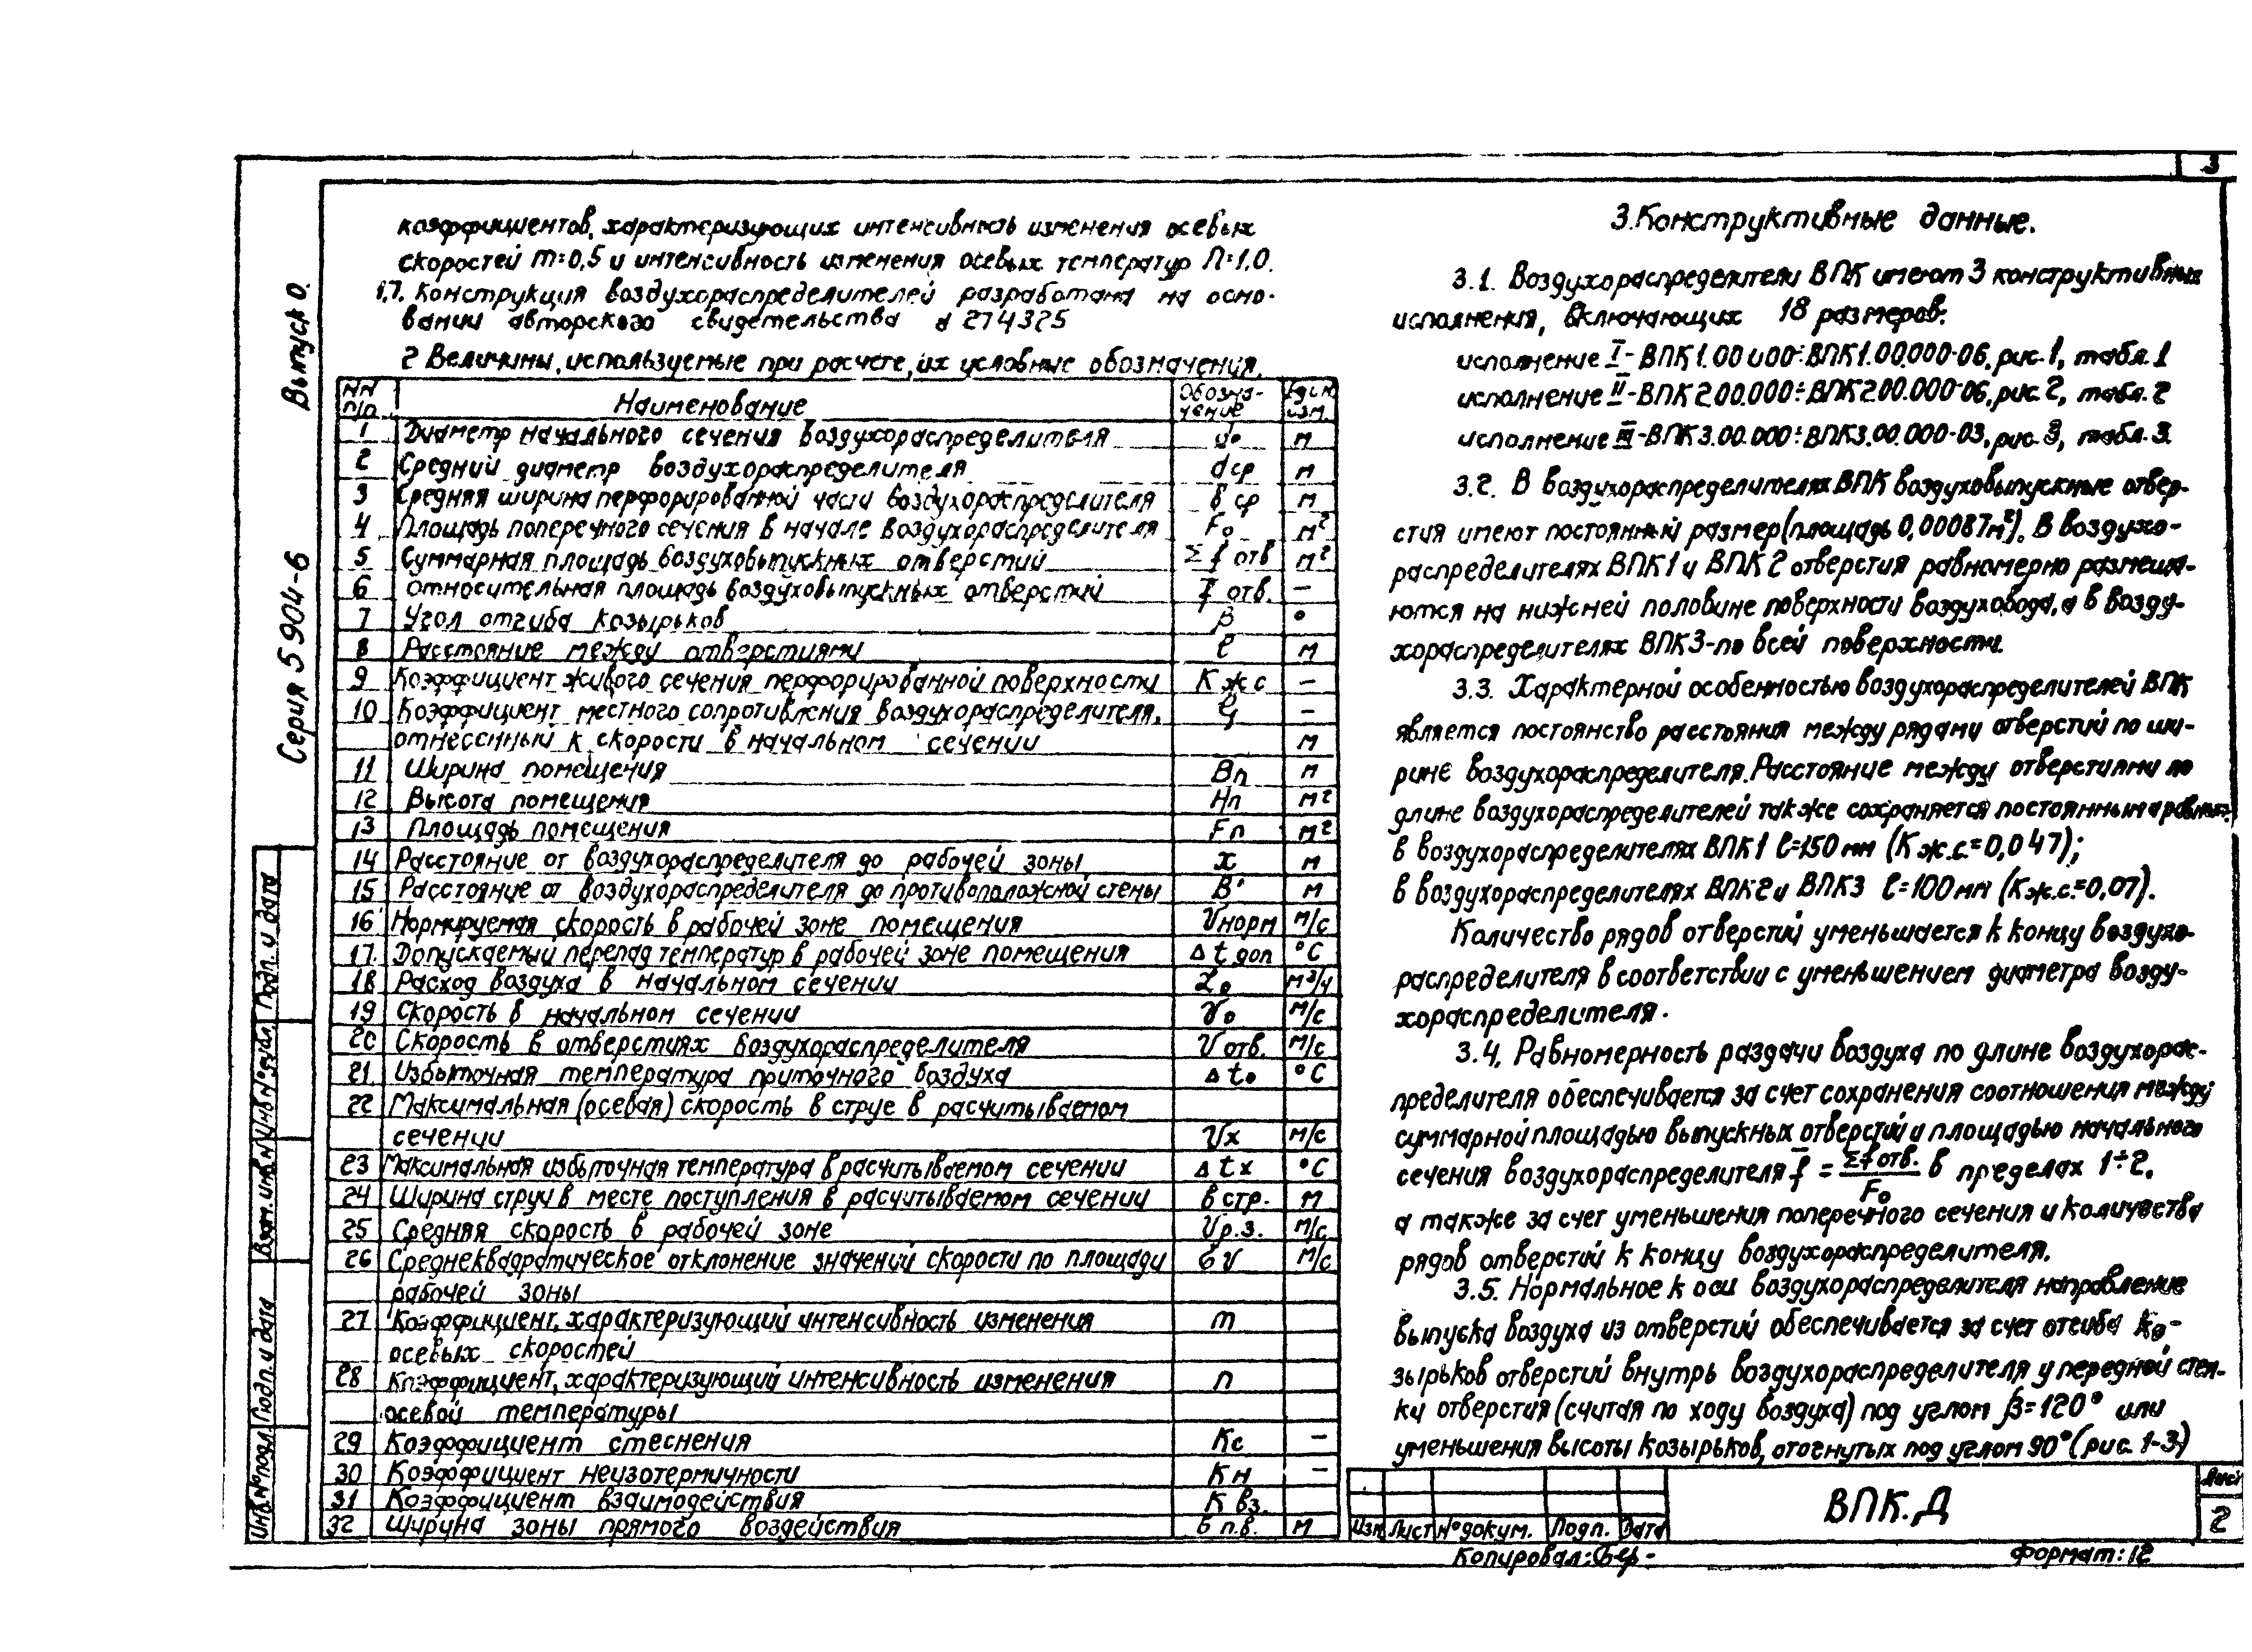 3
Серия 5904-6
Выпуск 0.
коэффициентов, характеризующих интенсивность изменения осевых
скоростей m=0,5 и интенсивность изменения осевых температур n=1,0.
1.7. Конструкция воздухораспределителей разработана на осно-
вании авторского свидетельства 274325
2 Величины, используемые при расчете, их условные обозначения.
NN п/п | Наименование | Обозна-чение | Един. изм.
1 Диаметр начального сечения воздухораспределителя d₀ м
2 Средний диаметр воздухораспределителя dср м
3 Средняя ширина перфорированной части воздухораспределителя вср м
4 Площадь поперечного сечения в начале воздухораспределителя F₀ м²
5 Суммарная площадь воздуховыпускных отверстий Σ f отв м²
6 Относительная площадь воздуховыпускных отверстий f̄ отв. –
7 Угол отгиба козырьков β °
8 Расстояние между отверстиями ℓ м
9 Коэффициент живого сечения перфорированной поверхности К ж с –
10 Коэффициент местного сопротивления воздухораспределителя, ζ –
отнесенный к скорости в начальном сечении м
11 Ширина помещения Вп м
12 Высота помещения Нп м²
13 Площадь помещения Fп м²
14 Расстояние от воздухораспределителя до рабочей зоны x м
15 Расстояние от воздухораспределителя до противоположной стены В' м
16 Нормируемая скорость в рабочей зоне помещения Vнорм м/с
17. Допускаемый перепад температур в рабочей зоне помещения Δ t доп °С
18 Расход воздуха в начальном сечении L₀ м³/ч
19 Скорость в начальном сечении V₀ м/с
20 Скорость в отверстиях воздухораспределителя V отв. м/с
21 Избыточная температура приточного воздуха Δ t₀ °С
22 Максимальная (осевая) скорость в струе в расчитываемом
сечении Vx м/с
23 Максимальная избыточная температура в расчитываемом сечении Δ t x °С
24 Ширина струи в месте поступления в расчитываемом сечении в стр. м
25 Средняя скорость в рабочей зоне Vр.з. м/с
26 Среднеквадратическое отклонение значений скорости по площади б V м/с
рабочей зоны
27 Коэффициент, характеризующий интенсивность изменения m
осевых скоростей
28 Коэффициент, характеризующий интенсивность изменения n
осевой температуры
29 Коэффициент стеснения Кс –
30 Коэффициент неизотермичности Кн –
31 Коэффициент взаимодействия К вз.
32 Ширина зоны прямого воздействия в п.в. м
3. Конструктивные данные.
3.1. Воздухораспределители ВПК имеют 3 конструктивных
исполнения, включающих 18 размеров:
исполнение I - ВПК1.00.000÷ВПК1.00.000-06, рис. 1, табл. 1
исполнение II - ВПК2.00.000÷ВПК2.00.000-06, рис. 2, табл. 2
исполнение III - ВПК3.00.000÷ВПК3.00.000-03, рис. 3, табл. 3.
3.2. В воздухораспределителях ВПК воздуховыпускные отвер-
стия имеют постоянный размер (площадь 0,00087м²). В воздухо-
распределителях ВПК1 и ВПК2 отверстия равномерно размеща-
ются на нижней половине поверхности воздуховода, а в возду-
хораспределителях ВПК3-по всей поверхности.
3.3. Характерной особенностью воздухораспределителей ВПК
является постоянство расстояния между рядами отверстий по ши-
рине воздухораспределителя. Расстояние между отверстиями по
длине воздухораспределителей также сохраняется постоянным и
в воздухораспределителях ВПК1 ℓ=150 мм (К ж.с.=0,047);
в воздухораспределителях ВПК2 и ВПК3 ℓ=100 мм (Кж.с.=0,07).
Количество рядов отверстий уменьшается к концу воздухо-
распределителя в соответствии с уменьшением диаметра возду-
хораспределителя.
3.4. Равномерность раздачи воздуха по длине воздухорас-
пределителя обеспечивается за счет сохранения соотношения между
суммарной площадью выпускных отверстий и площадью начального
сечения воздухораспределителя f̄ = Σf отв./F₀ в пределах 1÷2,
а также за счет уменьшения поперечного сечения и количества
рядов отверстий к концу воздухораспределителя.
3.5. Нормальное к оси воздухораспределителя направление
выпуска воздуха из отверстий обеспечивается за счет отгиба ко-
зырьков отверстий внутрь воздухораспределителя у передней стен-
ки отверстия (считая по ходу воздуха) под углом β=120° или
уменьшения высоты козырьков, отогнутых под углом 90° (рис. 1-3)
Инв.№подл. Подп. и дата Взам. инв.N Инв.N дубл. Подп. и дата
Изм Лист №докум. Подп. Дата
ВПК.Д
Лист
2
Копировал: Бер-
Формат: 12